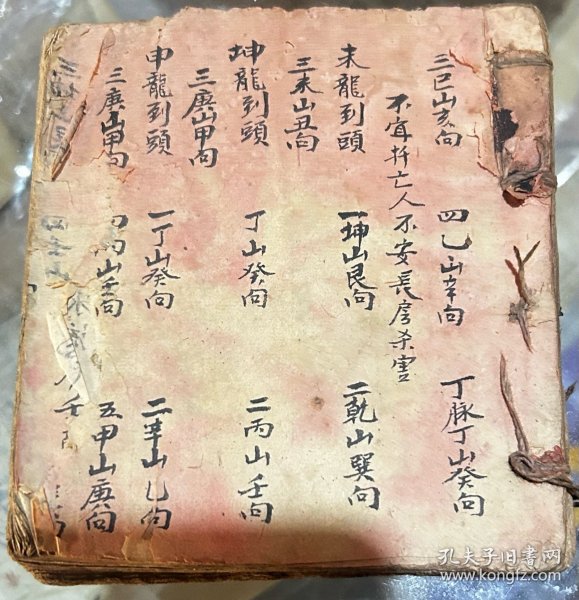 三巳山亥向 四乙山辛向 丁脉丁山癸向
不宜扦亡人不安長房杀害
未龍到頭 一坤山艮向 二乾山巽向
三未山丑向
坤龍到頭 丁山癸向 二丙山壬向
三庚山甲向
申龍到頭 一丁山癸向 二辛山乙向
三庚山甲向 四丙山壬向 五甲山庚向
孔夫子旧书网
www.kongfz.com